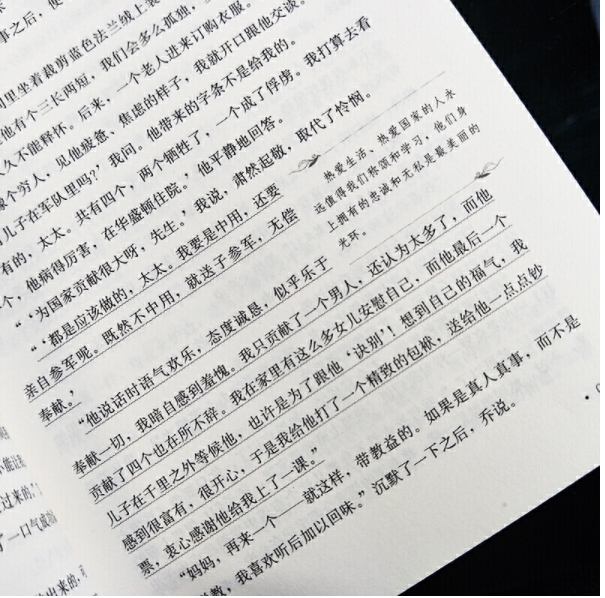 间里坐着裁剪蓝色法兰绒上装
他有个三长两短,我们会多么孤独,
久久不能释怀。后来,一个老人进来订购衣服。
像个穷人,见他疲惫、焦虑的样子,我就开口跟他交谈。
有儿子在军队里吗?’我问。他带来的字条不是给我的。
有的,太太。共有四个,两个牺牲了,一个成了俘虏。我打算去看
个,他病得厉害,在华盛顿住院。’他平静地回答。
“‘为国家贡献很大呀,先生。’我说,肃然起敬,取代了怜悯。
“‘都是应该做的,太太。我要是中用,还要
亲自参军呢。既然不中用,就送子参军,无偿
奉献。’
“他说话时语气欢乐,态度诚恳,似乎乐于
奉献一切,我暗自感到羞愧。我只贡献了一个男人,还认为太多了,而他
贡献了四个也在所不辞。我在家里有这么多女儿安慰自己,而他最后一个
儿子在千里之外等候他,也许是为了跟他‘诀别’!想到自己的福气,我
感到很富有,很开心,于是我给他打了一个精致的包袱,送给他一点点钞
票,衷心感谢他给我上了一课。”
“妈妈,再来一个——就这样,带教益的。如果是真人真事,而不是
说教,我喜欢听后加以回味。”沉默了一下之后,乔说。
热爱生活、热爱国家的人永
远值得我们称颂和学习,他们身
上拥有的忠诚和无私是最美丽的
光环。